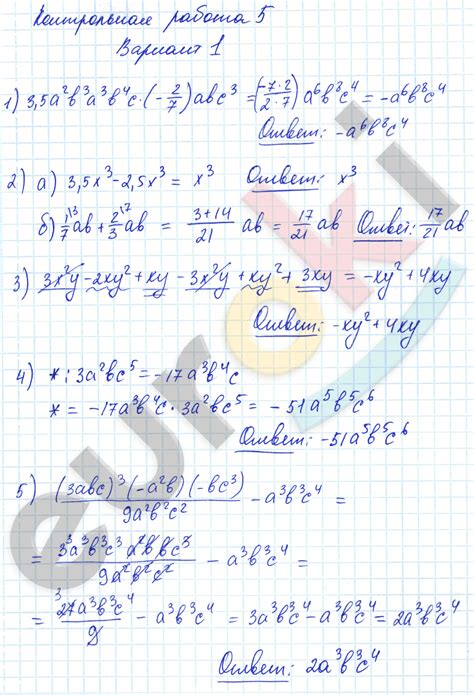 Контрольная работа 5
Вариант 1
1) 3,5a²b³a³b⁴c·(-2/7)abc³ = (-7·2/2·7)a⁶b⁸c⁴ = -a⁶b⁸c⁴
Ответ: -a⁶b⁸c⁴
2) а) 3,5x³-2,5x³ = x³ Ответ: x³
б) 1\3/7 ab + 2\7/3 ab = 3+14/21 ab = 17/21 ab Ответ: 17/21 ab
3) 3x²y-2xy²+xy-3x²y+xy²+3xy = -xy²+4xy
Ответ: -xy²+4xy
4) *:3a²bc⁵=-17a³b⁴c
* = -17a³b⁴c·3a²bc⁵ = -51a⁵b⁵c⁶
Ответ: -51a⁵b⁵c⁶
5) (3abc)³(-a²b)(-bc³)/9a²b²c² - a³b³c⁴ =
= 3³a³b³c³a²bbc³/9a²b²c² - a³b³c⁴ =
= 27a³b³c⁴/9 - a³b³c⁴ = 3a³b³c⁴-a³b³c⁴ = 2a³b³c⁴
Ответ: 2a³b³c⁴
euroki